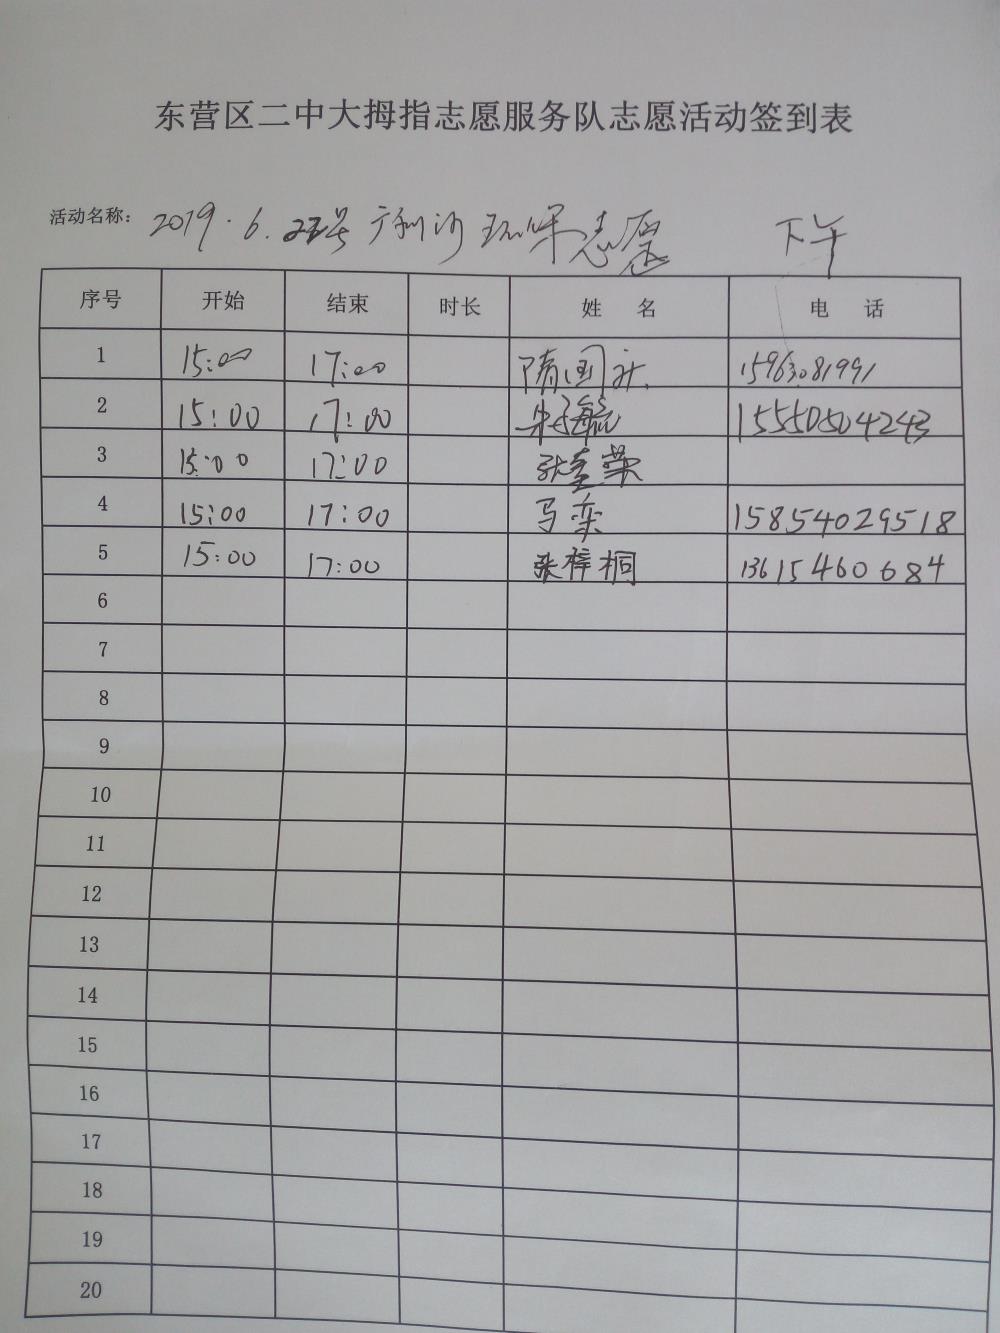 东营区二中大拇指志愿服务队志愿活动签到表
活动名称: 2019.6.22号 广利河环保志愿 下午
序号 开始 结束 时长 姓名 电话
1 15:00 17:00 隋国 15963081991
2 15:00 17:00 15550504243
3 15:00 17:00 张荣
4 15:00 17:00 马栾 15854029518
5 15:00 17:00 张梓桐 13615460684
6
7
8
9
10
11
12
13
14
15
16
17
18
19
20